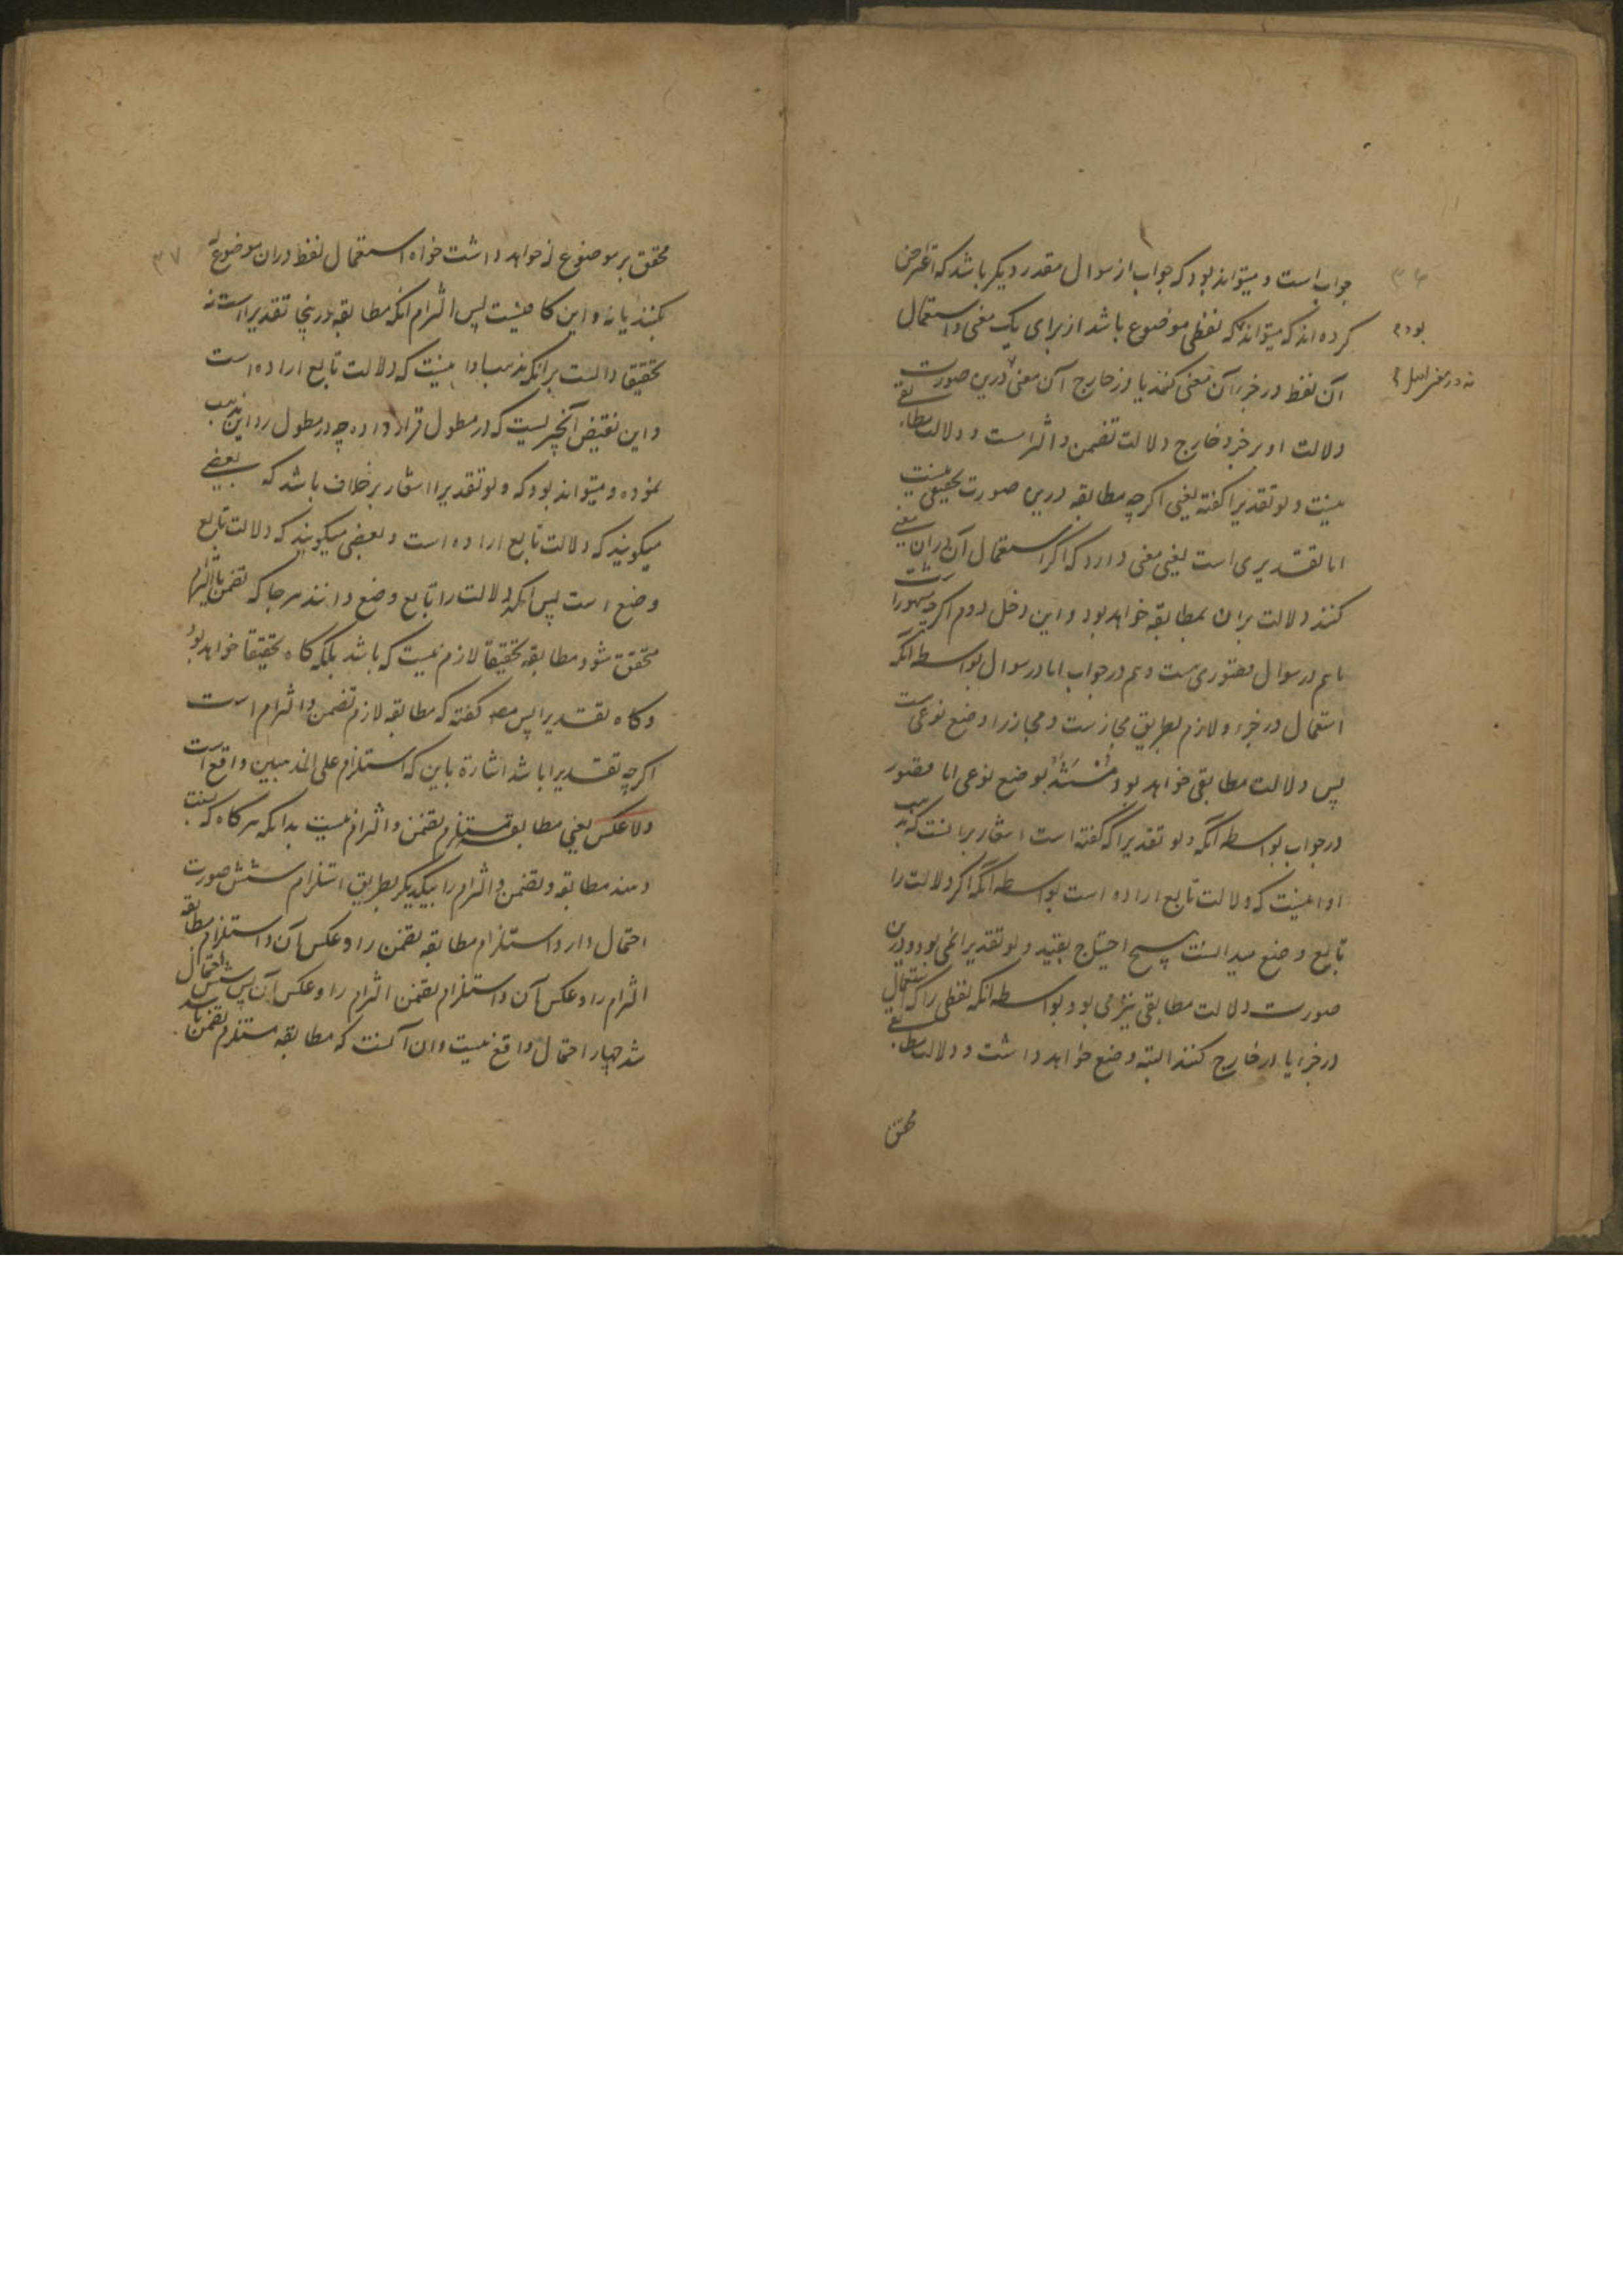 ۳۶
جواب است و میتواند بود که جواب از سوال مقدر دیگر باشد که اعتراض
کرده اند که میتواند که لفظی موضوع باشد از برای یک معنی و استعمال
بود م
آن لفظ در جزء آن معنی کنند یا در خارج آن معنی درین صورت
نه در معنی اصل م
دلالت او بر جزء و خارج دلالت تضمن و التزامست و دلالت مطابقی
نیست و لو تقدیرا گفته یعنی اگرچه مطابقه درین صورت تحقیقی نیست
اما تقدیری است یعنی معنی دارد که اگر استعمال آن در آن معنی
کنند دلالت بران بمطابقه خواهد بود و این دخل دوم اگرچه مشهور است
باهم در سوال قصوری ست و هم در جواب اما در سوال بواسطه انکه
استعمال در جزء و لازم بطریق مجاز ست و مجاز را وضع نوعی است
پس دلالت مطابقی خواهد بود مستند بوضع نوعی اما قصور
در جواب بواسطه آنکه و لو تقدیرا که گفته است اشاره برانست که مذهب
او اینست که دلالت تابع اراده است بواسطه آنکه اگر دلالت را
تابع وضع میدانست هیچ احتیاج بقید و لو تقدیرا نمی بود و درین
صورت دلالت مطابقی نیز می بود بواسطه انکه لفظی را که استعمال
در جزء یا در خارج کنند البته وضع خواهد داشت و دلالت مطابقی
محقق
۳۷
محقق بر موضوع له خواهد داشت خواه استعمال لفظ دران موضوع له
بکنند یا نه و این کافیست پس التزام انکه مطابقه درینجا تقدیرا است نه
تحقیقا دالست بر انکه مذهب او اینست که دلالت تابع اراده است
و این نقیض آنچیزیست که در مطول قرار داده چه در مطول رد این مذهب
نموده و میتواند بود که و لو تقدیرا اشاره بر خلاف باشد که بعضی
میکویند که دلالت تابع اراده است و بعضی میکویند که دلالت تابع
وضع است پس انکه دلالت را تابع وضع دانند هرجا که تضمن یا التزام
متحقق شود مطابقه تحقیقا لازم نیست که باشد بلکه کاه تحقیقا خواهد بود
و کاه تقدیرا پس مصـ گفته که مطابقه لازم تضمن و التزام است
اگرچه تقدیرا باشد اشارة باین که استلزام علی المذهبین واقع است
ولا عکس یعنی مطابقه مستلزم تضمن و التزام نیست بدانکه هرکاه که نسبت
دهند مطابقه و تضمن و التزام را بیکدیگر بطریق استلزام شش صورت
احتمال دارد استلزام مطابقه تضمن را و عکس آن و استلزام مطابقه
التزام را و عکس آن و استلزام تضمن التزام را و عکس آن پس شش احتمال
شد چهار احتمال واقع نیست و ان آنست که مطابقه مستلزم تضمن باشد